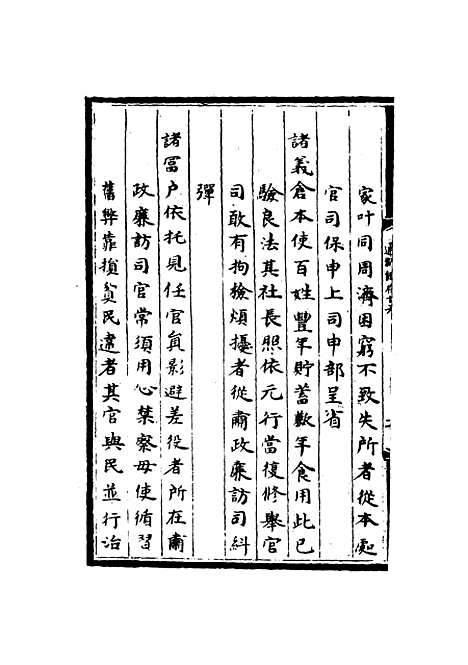 家叶同周濟困窮不致失所者從本處
官司保申上司申部呈省
諸義倉本使百姓豐年貯蓄歉年食用此已
驗良法其社長照依元行當復修舉官
司敢有拘檢煩擾者從肅政廉訪司糾
彈
諸富户依托見任官員影避差役者所在肅
政廉訪司官常須用心禁察毋使循習
舊弊靠損貧民違者其官與民並行治